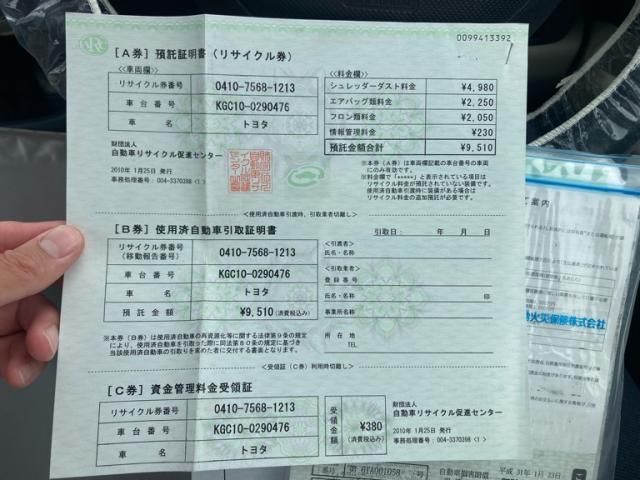 0099413392
[A券] 預託証明書(リサイクル券)
<<車両欄>>
リサイクル券番号 0410-7568-1213
車台番号 KGC10-0290476
車名 トヨタ
<<料金欄>>
シュレッダーダスト料金 ¥4,980
エアバッグ類料金 ¥2,250
フロン類料金 ¥2,050
情報管理料金 ¥230
預託金額合計 ¥9,510
財団法人
自動車リサイクル促進センター
2010年 1月25日 発行
事務処理番号:004-3370398
※本券(A券)は車両欄記載の車台番号の車両
にのみ有効です。
※料金欄に「*****」と表示されている項目は
リサイクル料金が預託されていない装備です。
使用済自動車引渡時に装備がある場合は
リサイクル料金の追加預託が必要です。
<使用済自動車引渡時、引取業者切離し>
[B券] 使用済自動車引取証明書
引取日: 年 月 日
リサイクル券番号
(移動報告番号) 0410-7568-1213
車台番号 KGC10-0290476
車名 トヨタ
預託金額 ¥9,510(消費税込み)
<引渡者>
氏名・名称
<引取業者>
登録番号
氏名・名称 印
事業所名称
所在地
TEL.
※本券(B券)は使用済自動車の再資源化等に関する法律第9条の規定
により、使用済自動車を引取った際に同法第80条の規定に基づき
当該使用済自動車の引取りを求めた者に交付する書面となります。
<受領証(C券)利用時切離し>
[C券] 資金管理料金受領証
リサイクル券番号 0410-7568-1213
車台番号 KGC10-0290476
車名 トヨタ
受領金額 ¥380
(消費税込み)
財団法人
自動車リサイクル促進センター
2010年 1月25日 発行
事務処理番号:004-3370398
ご案内
火災保険株式会社
番号
自動車損害賠償
平成 31年 1月 23日